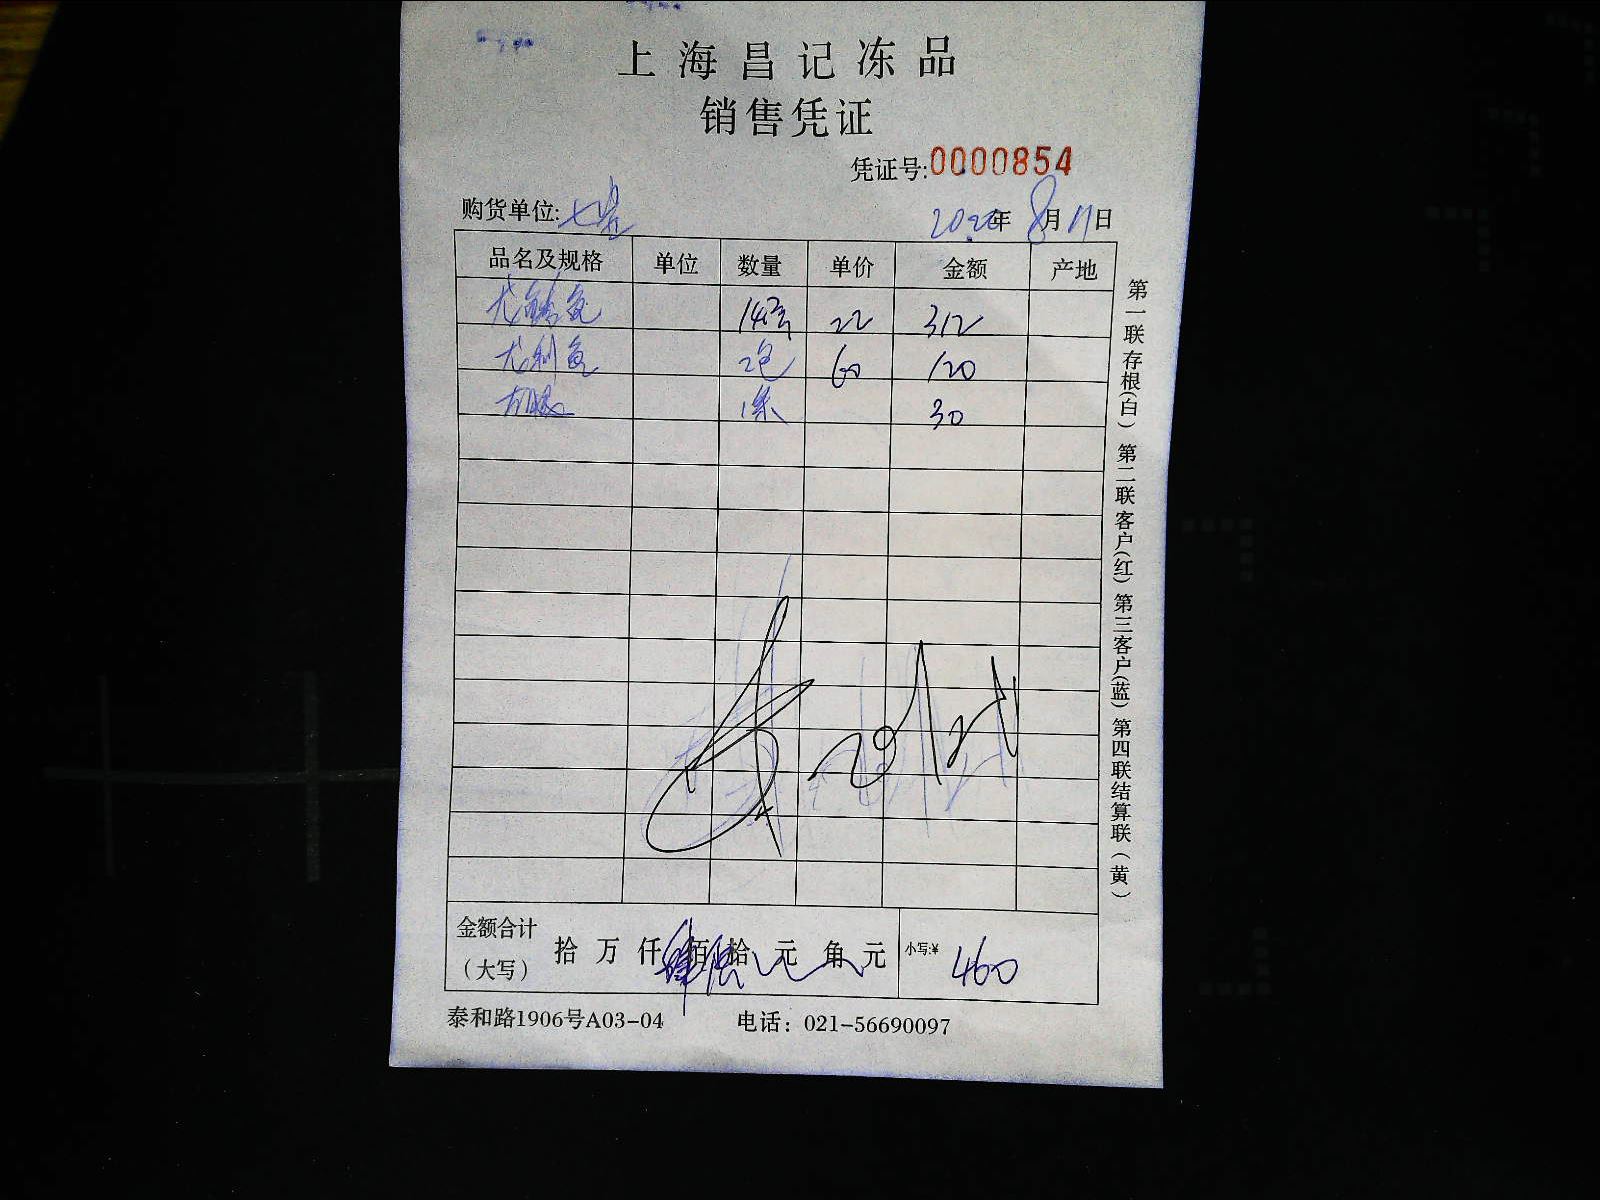 上海昌记冻品
销售凭证
凭证号:0000854
购货单位:七星 2020年8月11日
品名及规格 单位 数量 单价 金额 产地
鱼 22 312
尤利鱼 2包 60 120
1条 30
金额合计(大写) 拾万仟肆佰陆拾元角元 小写:¥ 460
泰和路1906号A03-04 电话：021-56690097
第一联存根(白) 第二联客户(红) 第三客户(蓝) 第四联结算联(黄)